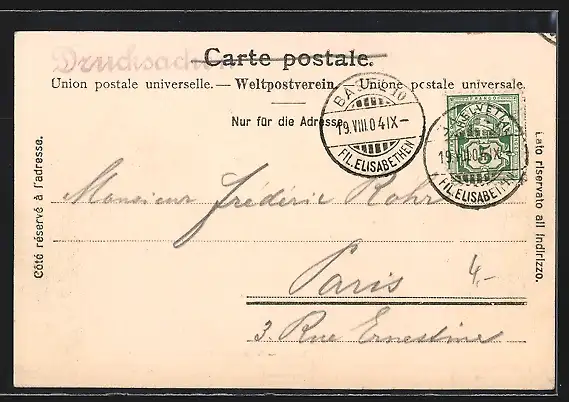 Drucksache
Carte postale.
Union postale universelle. — Weltpostverein. — Unione postale universale.
Nur für die Adresse.
Côté réservé à l'adresse.
Lato riservato all indirizzo.
BASEL 10
19.VIII.04 IX-
FIL. ELISABETHEN
FRANCO
HELVETIA
5
19.VIII.04 IX
FIL. ELISABETHEN
Monsieur Frédéric Rohr
Paris
4,-
3. Rue Ernestine